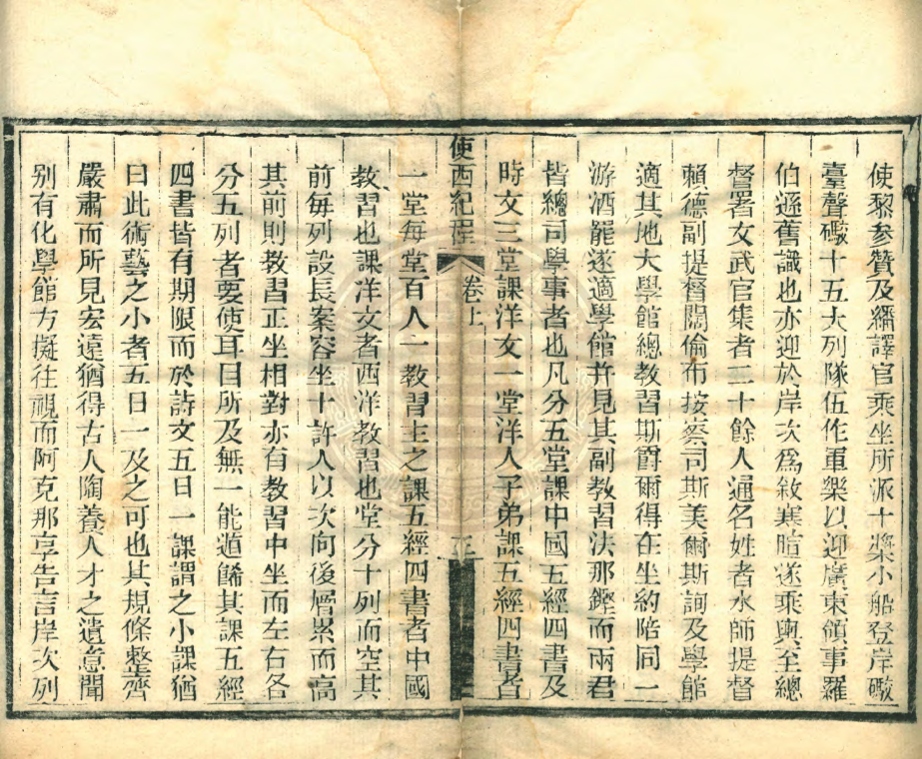 使黎參贊及繙譯官乘坐所派十槳小船登岸礮
臺聲礮十五大列隊伍作軍樂以迎廣東領事羅
伯遜舊識也亦迎於岸次爲敘寒暄遂乘輿至總
督署文武官集者二十餘人通名姓者水師提督
賴德副提督闊倫布按察司斯美爾斯詢及學館
適其地大學館總教習斯爵爾得在坐約陪同一
游酒罷遂適學館并見其副教習法那鏗而兩君
皆總司學事者也凡分五堂課中國五經四書及
時文三堂課洋文一堂洋人子弟課五經四書者
使西紀程
卷上
三
一堂每堂百人一教習主之課五經四書者中國
教習也課洋文者西洋教習也堂分十列而空其
前每列設長案容坐十許人以次向後層累而高
其前則教習正坐相對亦有教習中坐而左右各
分五列者要使耳目所及無一能遁飾其課五經
四書皆有期限而於詩文五日一課謂之小課猶
曰此術藝之小者五日一及之可也其規條整齊
嚴肅而所見宏遠猶得古人陶養人才之遺意聞
別有化學館方擬往視而阿克那亨告言岸次列